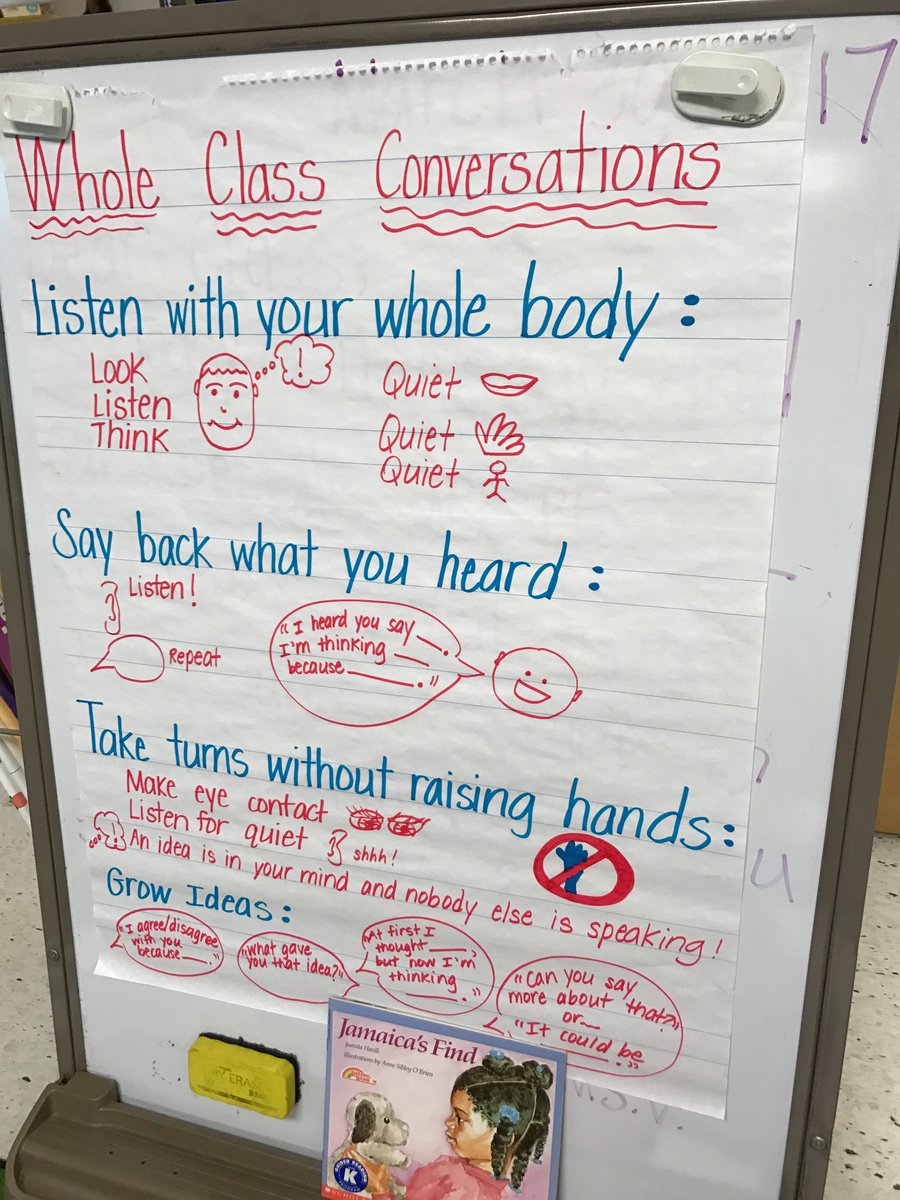 17
Whole Class Conversations
Listen with your whole body:
Look
Listen
Think
!
Quiet
Quiet
Quiet
Say back what you heard:
Listen!
Repeat
"I heard you say ____.
I'm thinking ____
because ____."
Take turns without raising hands:
Make eye contact
Listen for quiet shhh!
! An idea is in your mind and nobody else is speaking!
Grow Ideas:
"I agree/disagree
with you
because ____."
"What gave
you that idea?"
"At first I
thought ____,
but now I'm
thinking
____."
"Can you say
more about that?"
or
"It could be
____."
Jamaica's Find
Juanita Havill
Illustrations by Anne Sibley O'Brien
GUIDED READING
K
SCHOLASTIC